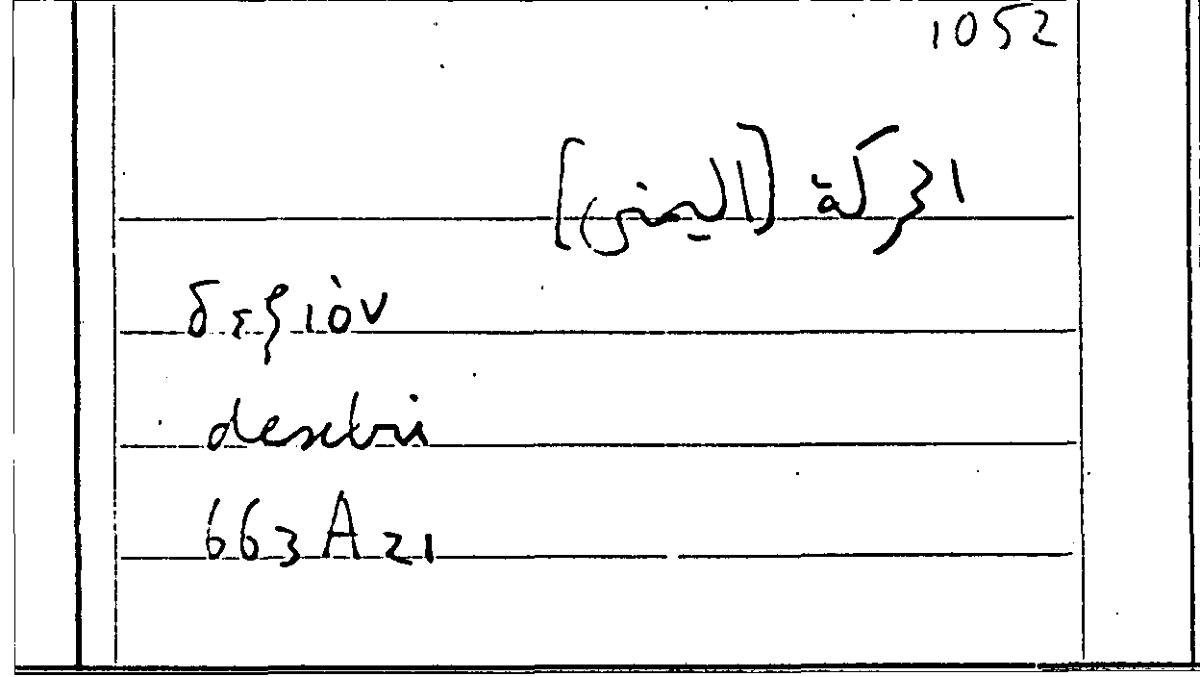 1052
الحركة [اليمنى]
δεξιόν
dextri
663A21